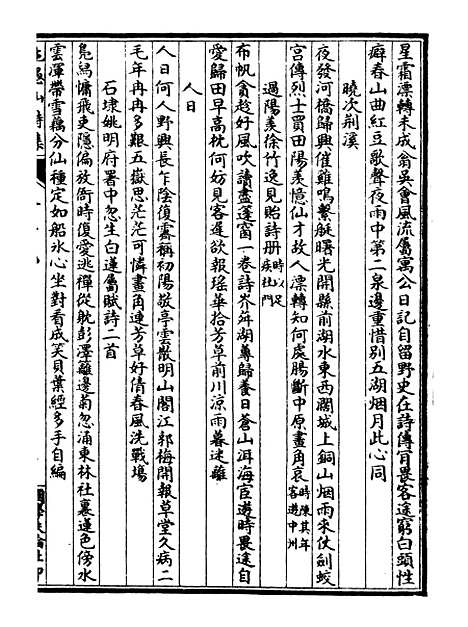 星霜漂轉未成翁吳會風流屬寓公日記自留野史在詩傳肯畏客途窮白頭性
癖春山曲紅豆歌聲夜雨中第二泉邊重惜别五湖烟月此心同
曉次荆溪
夜發河橋歸興催雞鳴繫艇曙光開縣前湖水東西闊城上銅山烟雨來仗劍蛟
宫傳烈士買田陽羨憶仙才故人漂轉知何處腸斷中原畫角哀時陳其年客遊中州
過陽羨徐竹逸見貽詩册時以足疾杜門
布帆貪趁好風吹讀盡蓬窗一卷詩岕舛湖蓴歸養日蒼山洱海宦遊時畏途自
愛歸田早高枕何妨見客遲欲報瑶華拾芳草前川涼雨暮迷離
人日
人日何人野興長乍陰復雲稱初陽敬亭雲散明山閣江郭梅開報草堂久病二
毛年冉冉多艱五嶽思茫茫可憐畫角連芳草好倩春風洗戰場
石埭姚明府署中忽生白蓮屬賦詩二首
鳧舄慵飛吏隱偏放衙時復愛逃禪從躭彭澤籬邊菊忽涌東林社裏蓮色傍水
雲渾帶雪藕分仙種定如船氷心坐對看成笑貝葉經多手自編